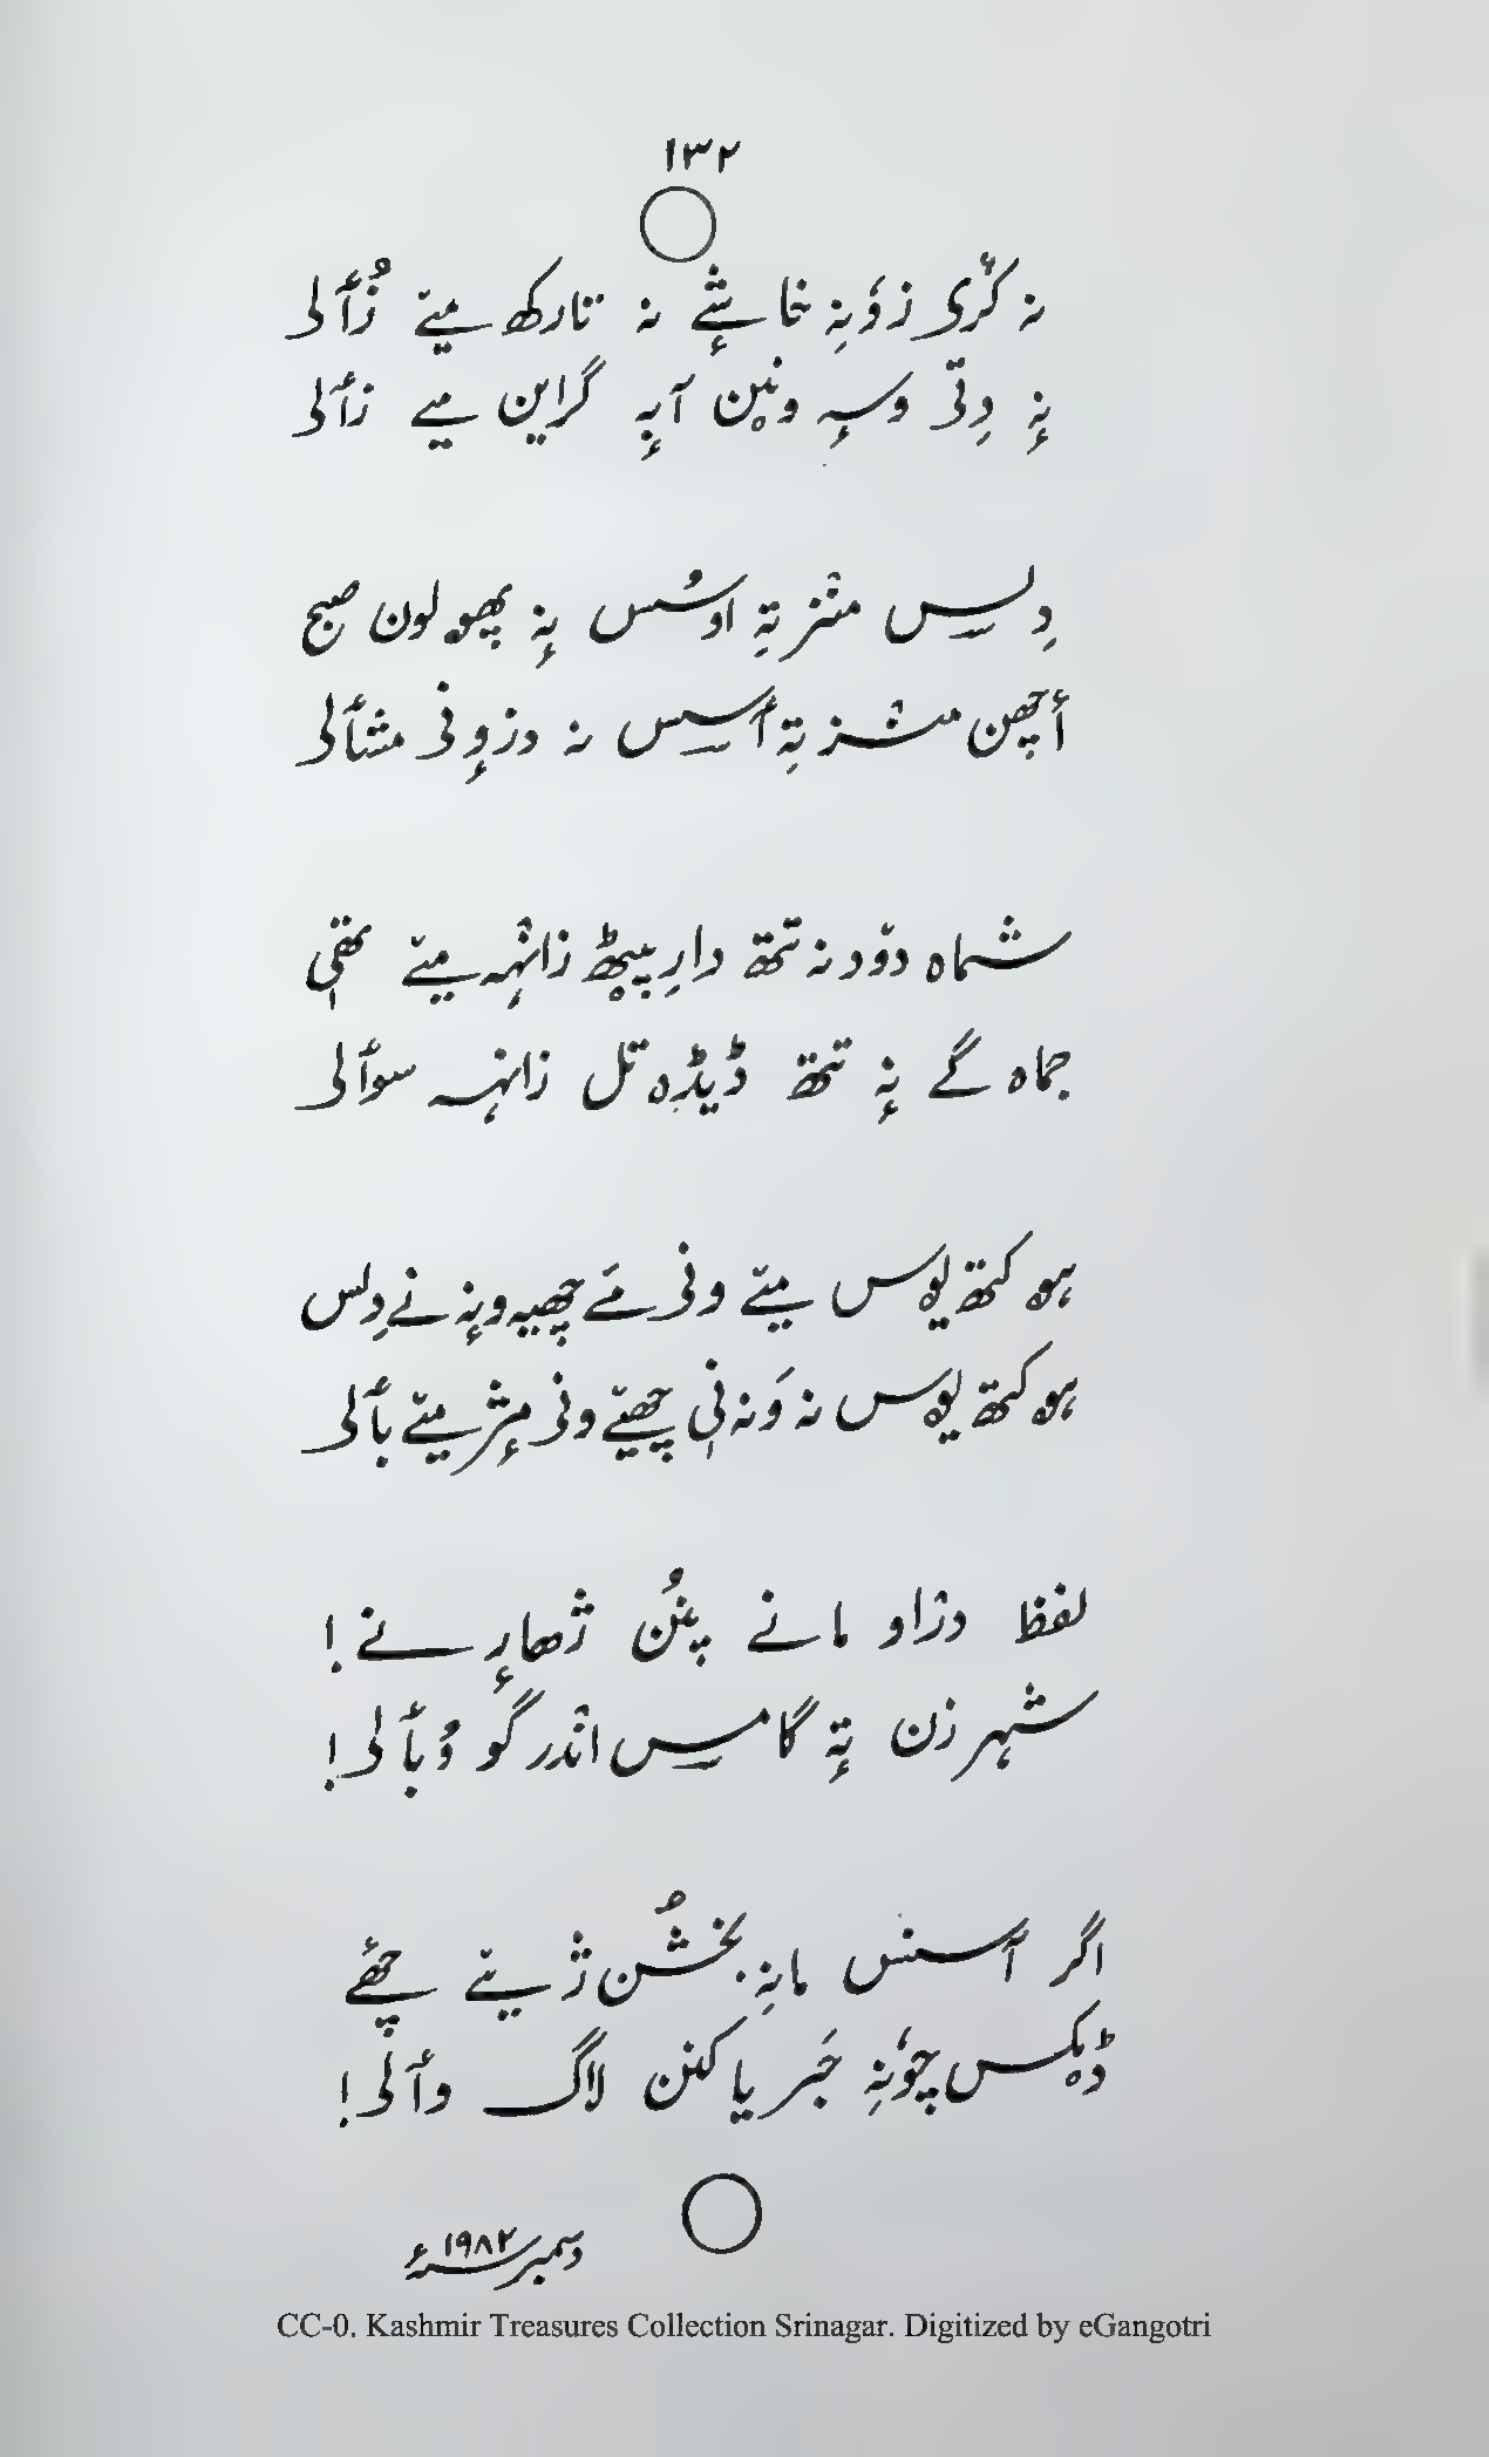 ۱۳۲
نہ کٔرۍ زوٗنہِ خاشے نہ تارکھ میتہِ زٲلی
نہٕ دِتۍ وسہٕ ونین آبہٕ گراین میے زٲلی
دِلیس منٛز تہِ اوسُس نہٕ پھولون صبح
أچھن منٛز تہِ ٲسیس نہ دزوٕنی مشٲلی
شماہ دوٚد نہ تتھ دارِ پیٹھ زانٛہہ میتے
جماہ گے نہٕ تتھ ڈیڈہ تل زانہہ سوٲلی
ہو کتھ یوٚس میتے ونی مے چھیہ ونہٕ نے دِلس
ہو کتھ یوٚس نہ وَنہ نؠ چھیتے ونی مٕژ میتے بٲلی
لفظ دراو مانے پنُن ژھارٕنے!
شہر زن تہٕ گامیس انٛدر گو وُبٲلی!
اگر آسنس مانہِ بخشُن ژیتے چھےٚ
ڈیکس چوٗنہِ جَبر یا کنن لاگ وٲلی!
دسمبر ۱۹۸۲ء
CC-0. Kashmir Treasures Collection Srinagar. Digitized by eGangotri